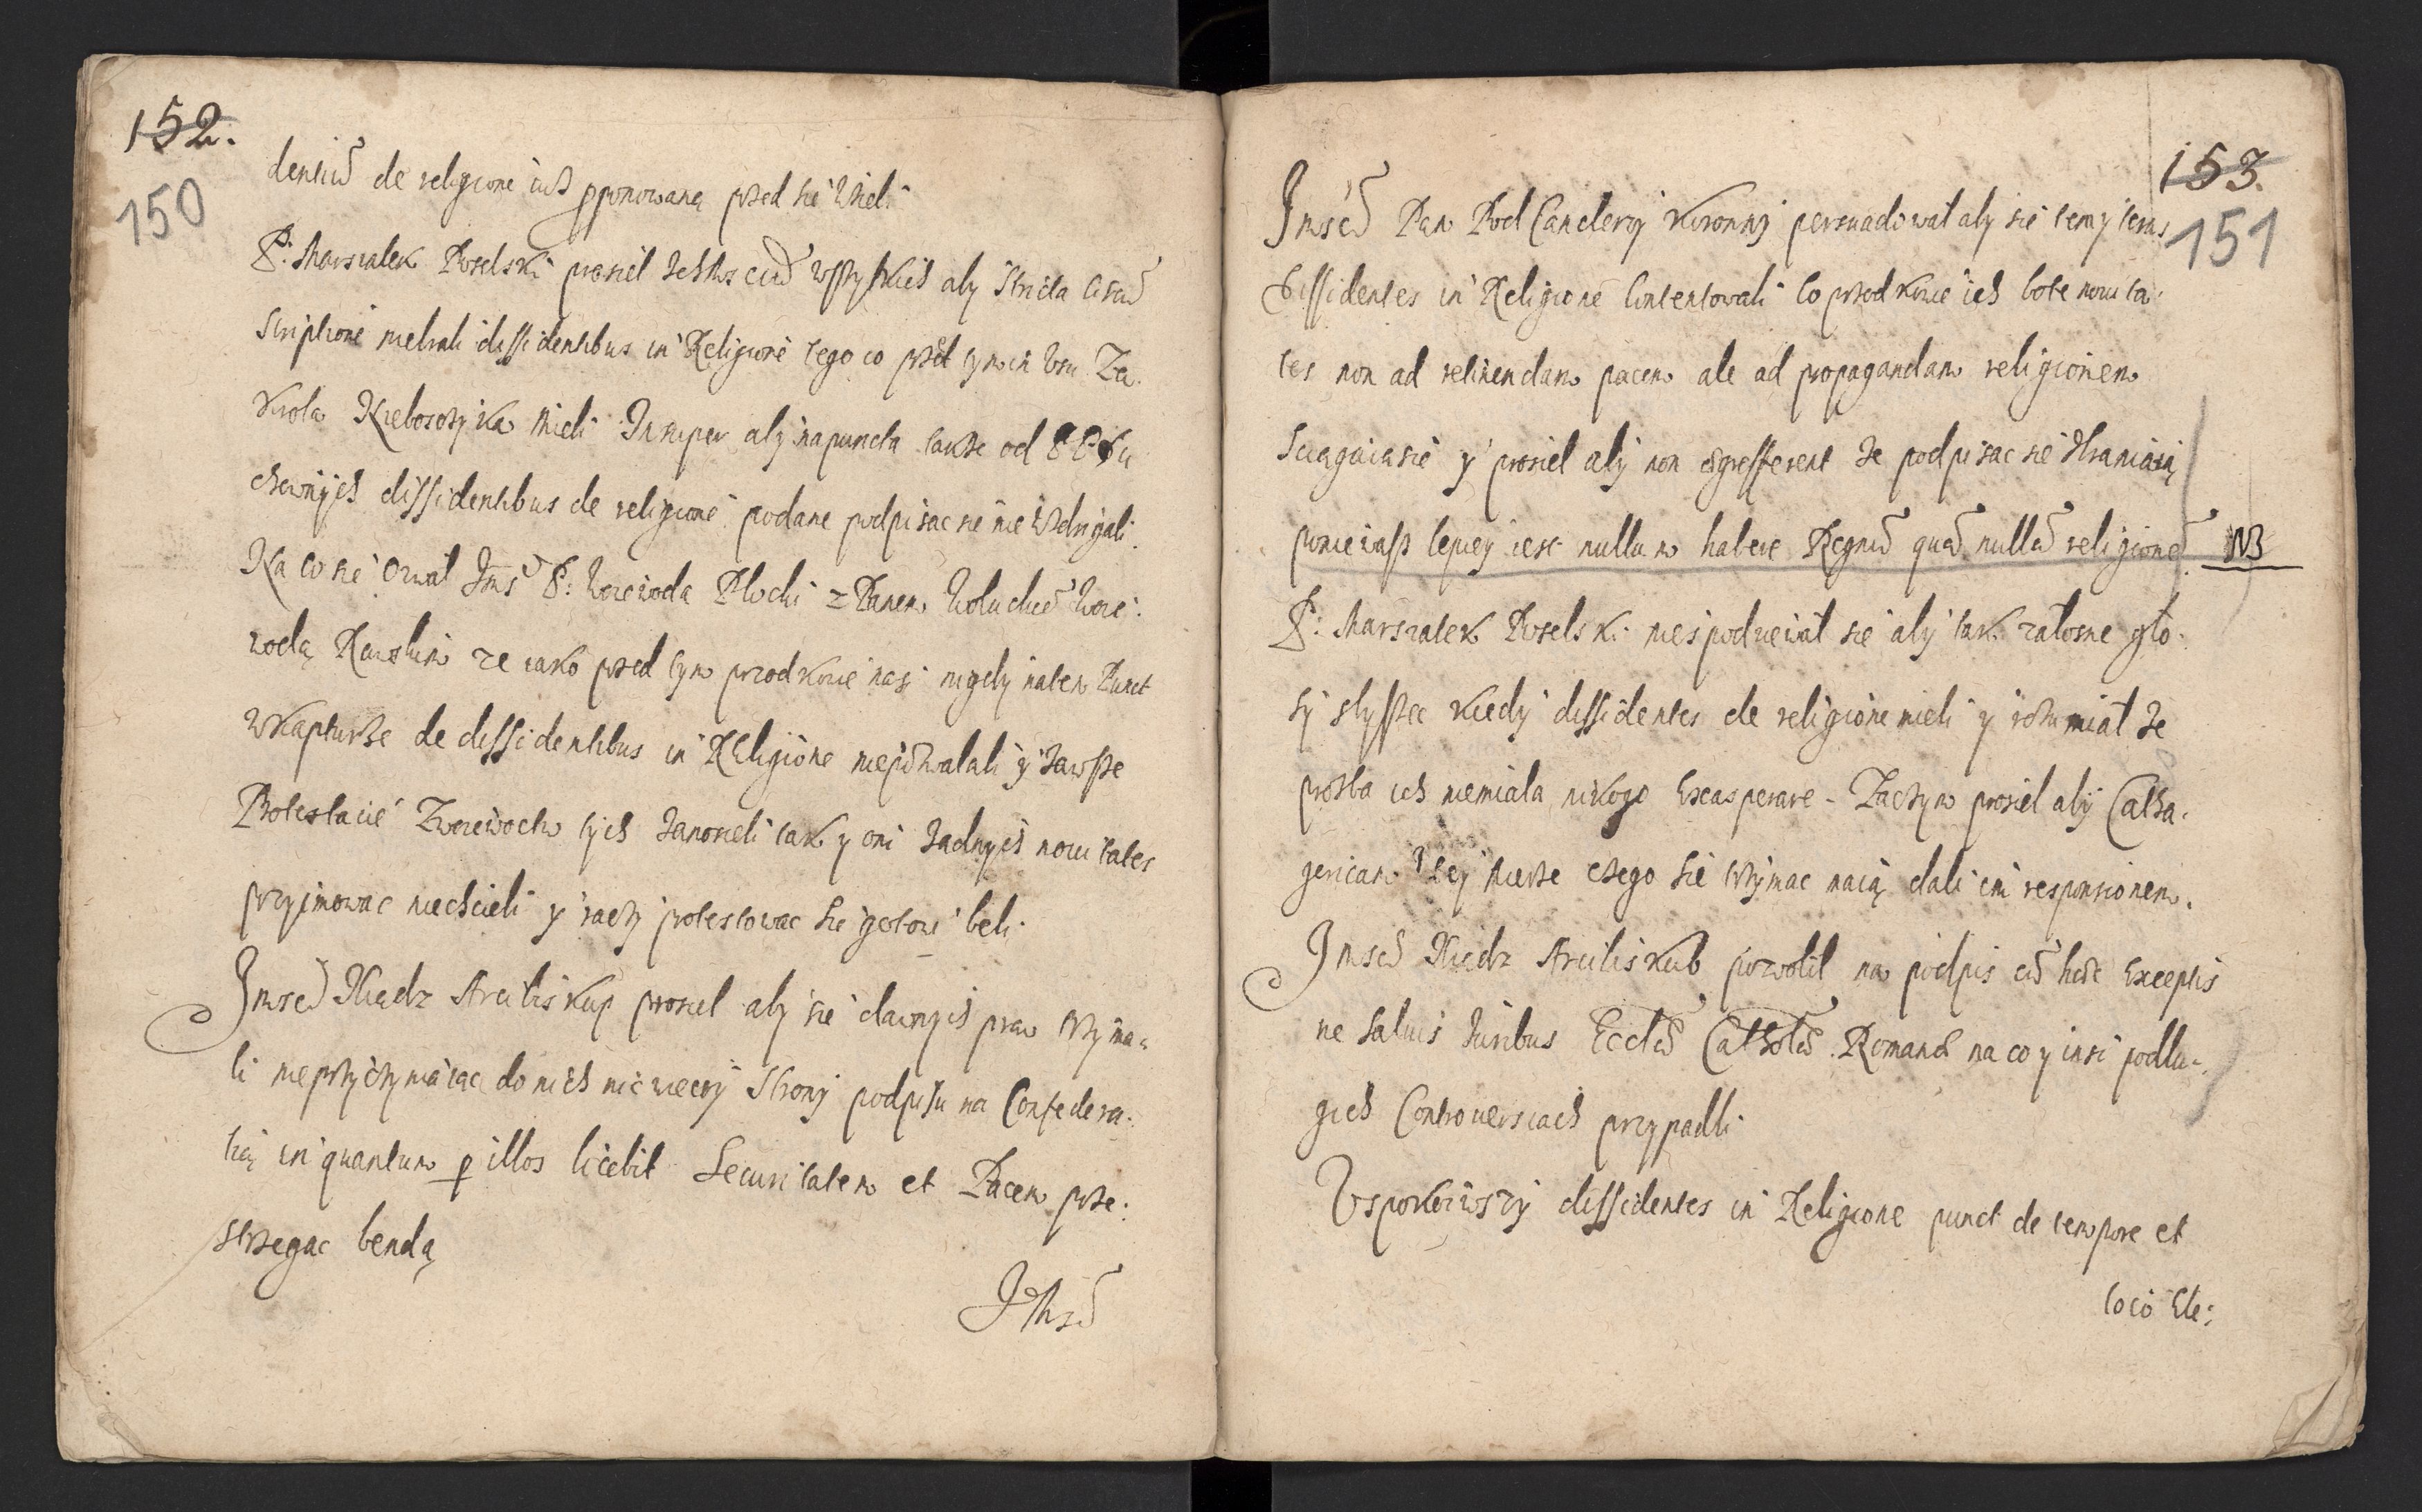 152.
150
dentiũ de religione iuz proponowaną przed sie wzieli
P: Marszalek Poselski prosiel Ich Mosciũ wszystkich aby stricta
scriptione niebrali dissidentibus in Religione tego co przed tym in usu Za
Krola Nieboszczyka mieli Insuper aby na puncta takze od PP Du
chownych dissidentibus de religione podane podpisac sie nie wzdrygali.
Na co sie ozwał Jms P: Woiewoda Plocki z Panem Woluckim Woie:
wodą Rawskim ze iako przed tym przodkowie nasi nigdy na ten Punct
w Kapturze de dissidentibus in REligione niepozwalali y zawsze
Protestacie Zwoiewodztw tych zanosieli tak y oni zadnych nouitates
przyimowac niechcieli y raczy protestowac sie gotowi beli
Jmsc Xiądz Arcibiskup prosiel aby sie dawnych praw trzyma=
li nieprzyczyniaiac do nich nic wiecey Strony podpisu na Confedera:
tią in quantum per illos licebit Securitatem et Pacem prze:
strzegac bendą
JMsc
153.
151
Jmsc Pan Pod Canclerzy Koronny persuadował aby sie temy teras
Dissidentes in Religione contentowali co przodkowie ich bo te nouita:
tes non ad retinendam pacem ale ad propagandam religionem
sciągaia sie y prosiel aby non egre fferent ze podpisac sie zbraniaią
poniewasz lepiey iest nullum habere Regnũ quã nullã religionẽ NB
P: Marszalek Poselski niespodziewał sie aby tak załosne gło:
sy slyszec kiedy dissidentes de religione mieli y rozumiał ze
prozba ich niemiala nikogo Exasperare – Zaczym prosiel aby Catha:
goricam w tey mierze czego sie trzymac maią dali im responsionem.
Jmsc Xiądz Arcibiskub pozwolił na podpis cũ hac Exceptio
ne saluis Iuribus Ecclæ Catholicæ Romanæ na co y insi po dlu=
gich Controuersiach przypadli
Uspokoiwszy dissidentes in Religione punct de tempore et
loco Ele: